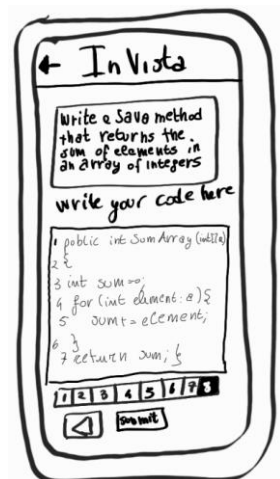 ← InVista
Write a Java method
that returns the
sum of elements in
an array of integers
write your code here
1 public int SumArray(int[]a)
2 {
3 int sum=0;
4 for (int element: a){
5 sum+=element;
6 }
7 return sum; }
1 2 3 4 5 6 7 8
submit